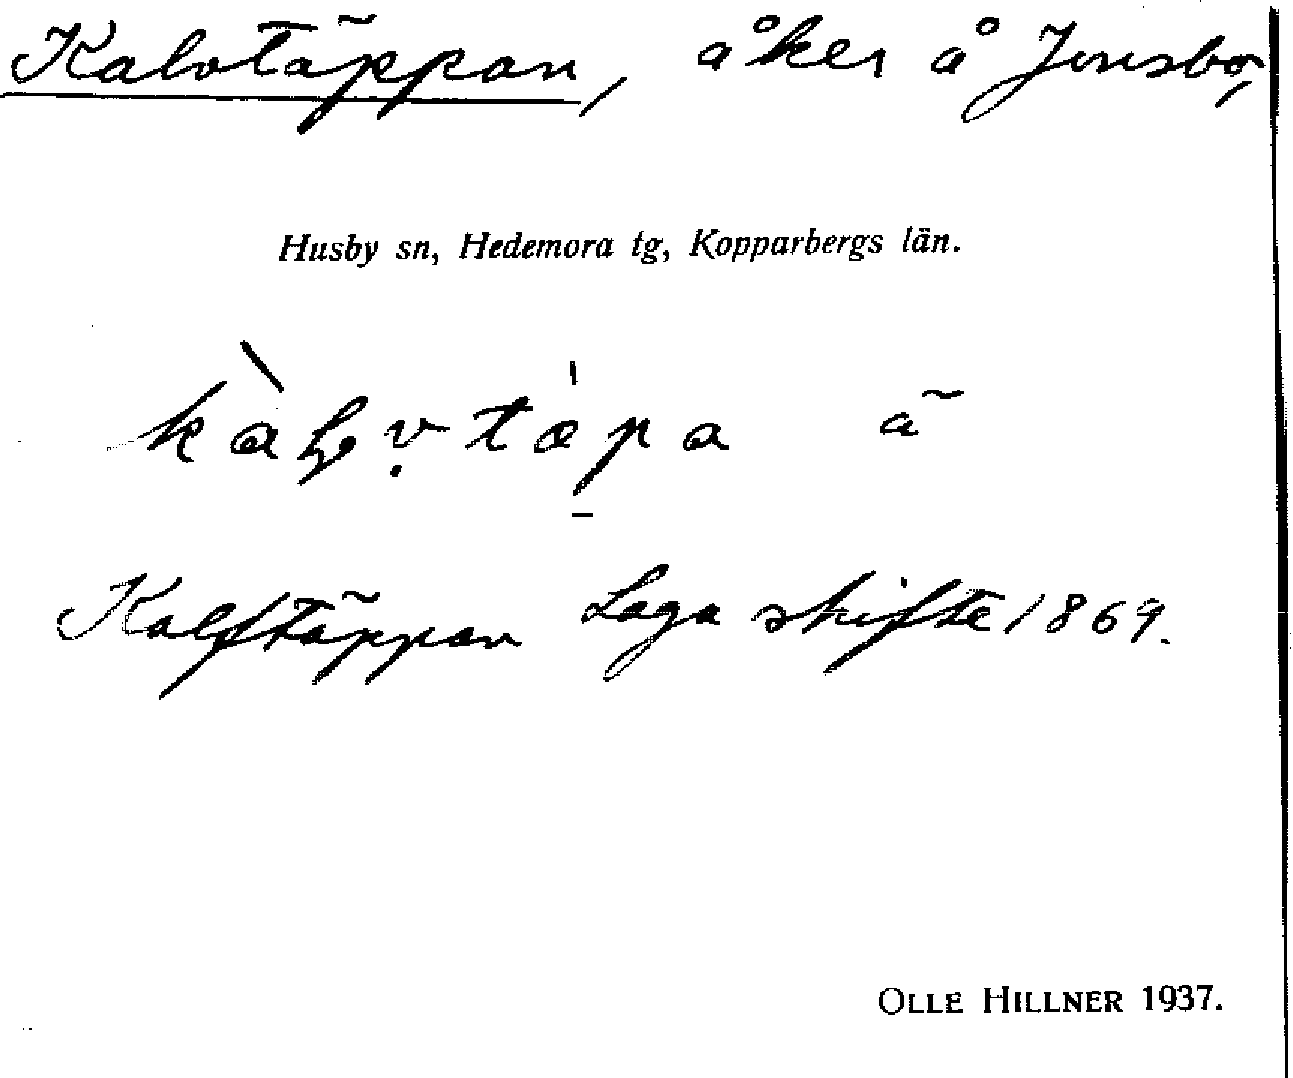 Kalvtäppan, åker å Jonsbo,
Husby sn, Hedemora tg, Kopparbergs län.
kàḷṿtæpa ä
Kalftäppan Laga skifte 1869.
OLLE HILLNER 1937.